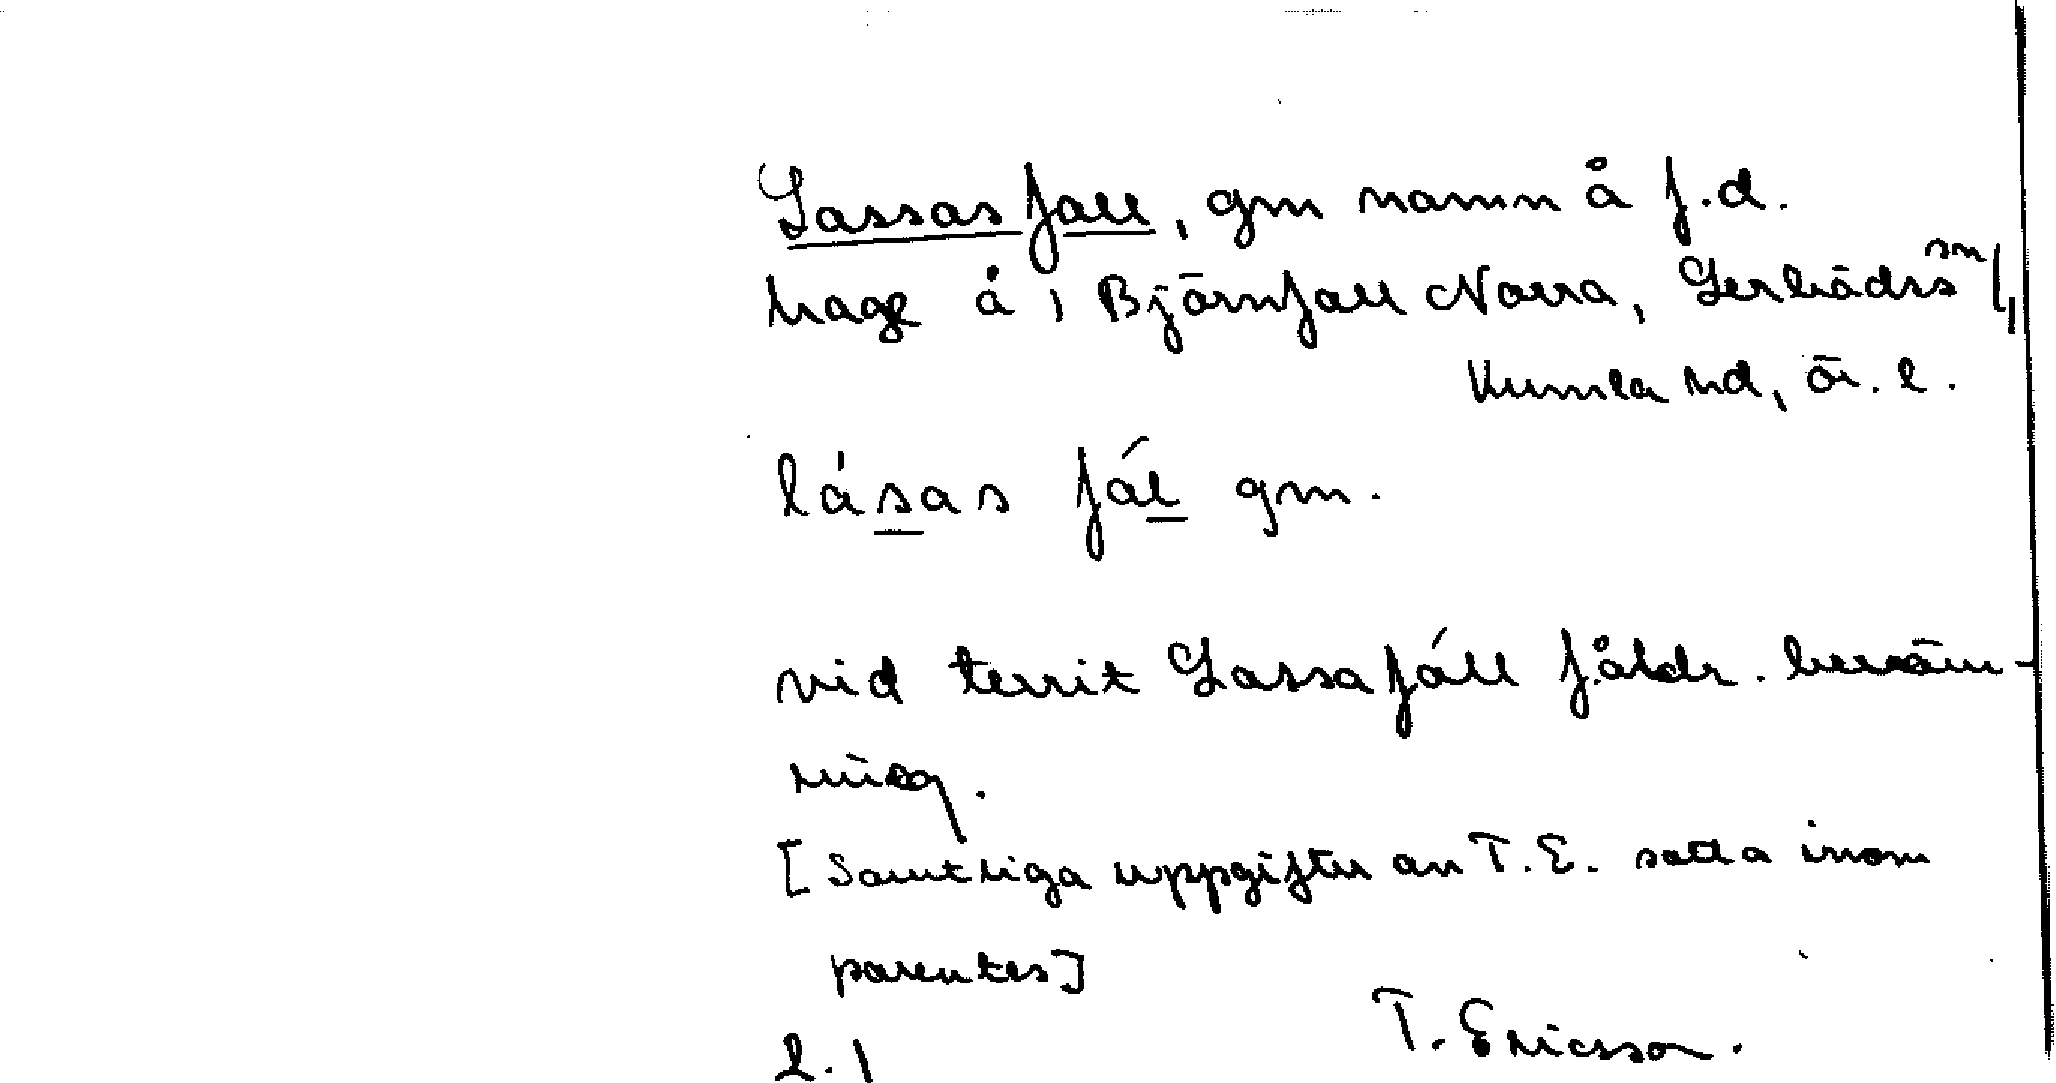 Lassas fall, gm namn å f.d.
hage å i Björnfall Norra, Lerbäcks sn,
Kumla hd, ör. l.
låsas fál gm.
vid territ Lassafáll f.åldr. benäm-
ning.
[Samtliga uppgifter av T.E. satta inom
parentes]
2.1 T. Ericsson.